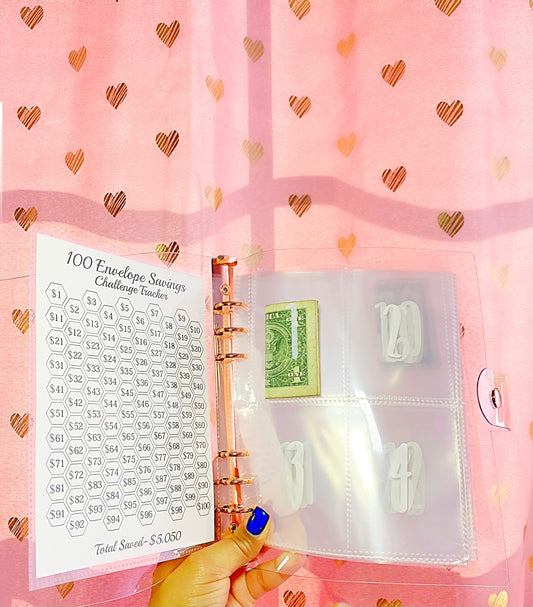 100 Envelope Savings
Challenge Tracker
$1 $2 $3 $4 $5 $6 $7 $8 $9 $10
$11 $12 $13 $14 $15 $16 $17 $18 $19 $20
$21 $22 $23 $24 $25 $26 $27 $28 $29 $30
$31 $32 $33 $34 $35 $36 $37 $38 $39 $40
$41 $42 $43 $44 $45 $46 $47 $48 $49 $50
$51 $52 $53 $54 $55 $56 $57 $58 $59 $60
$61 $62 $63 $64 $65 $66 $67 $68 $69 $70
$71 $72 $73 $74 $75 $76 $77 $78 $79 $80
$81 $82 $83 $84 $85 $86 $87 $88 $89 $90
$91 $92 $93 $94 $95 $96 $97 $98 $99 $100
Total Saved- $5,050